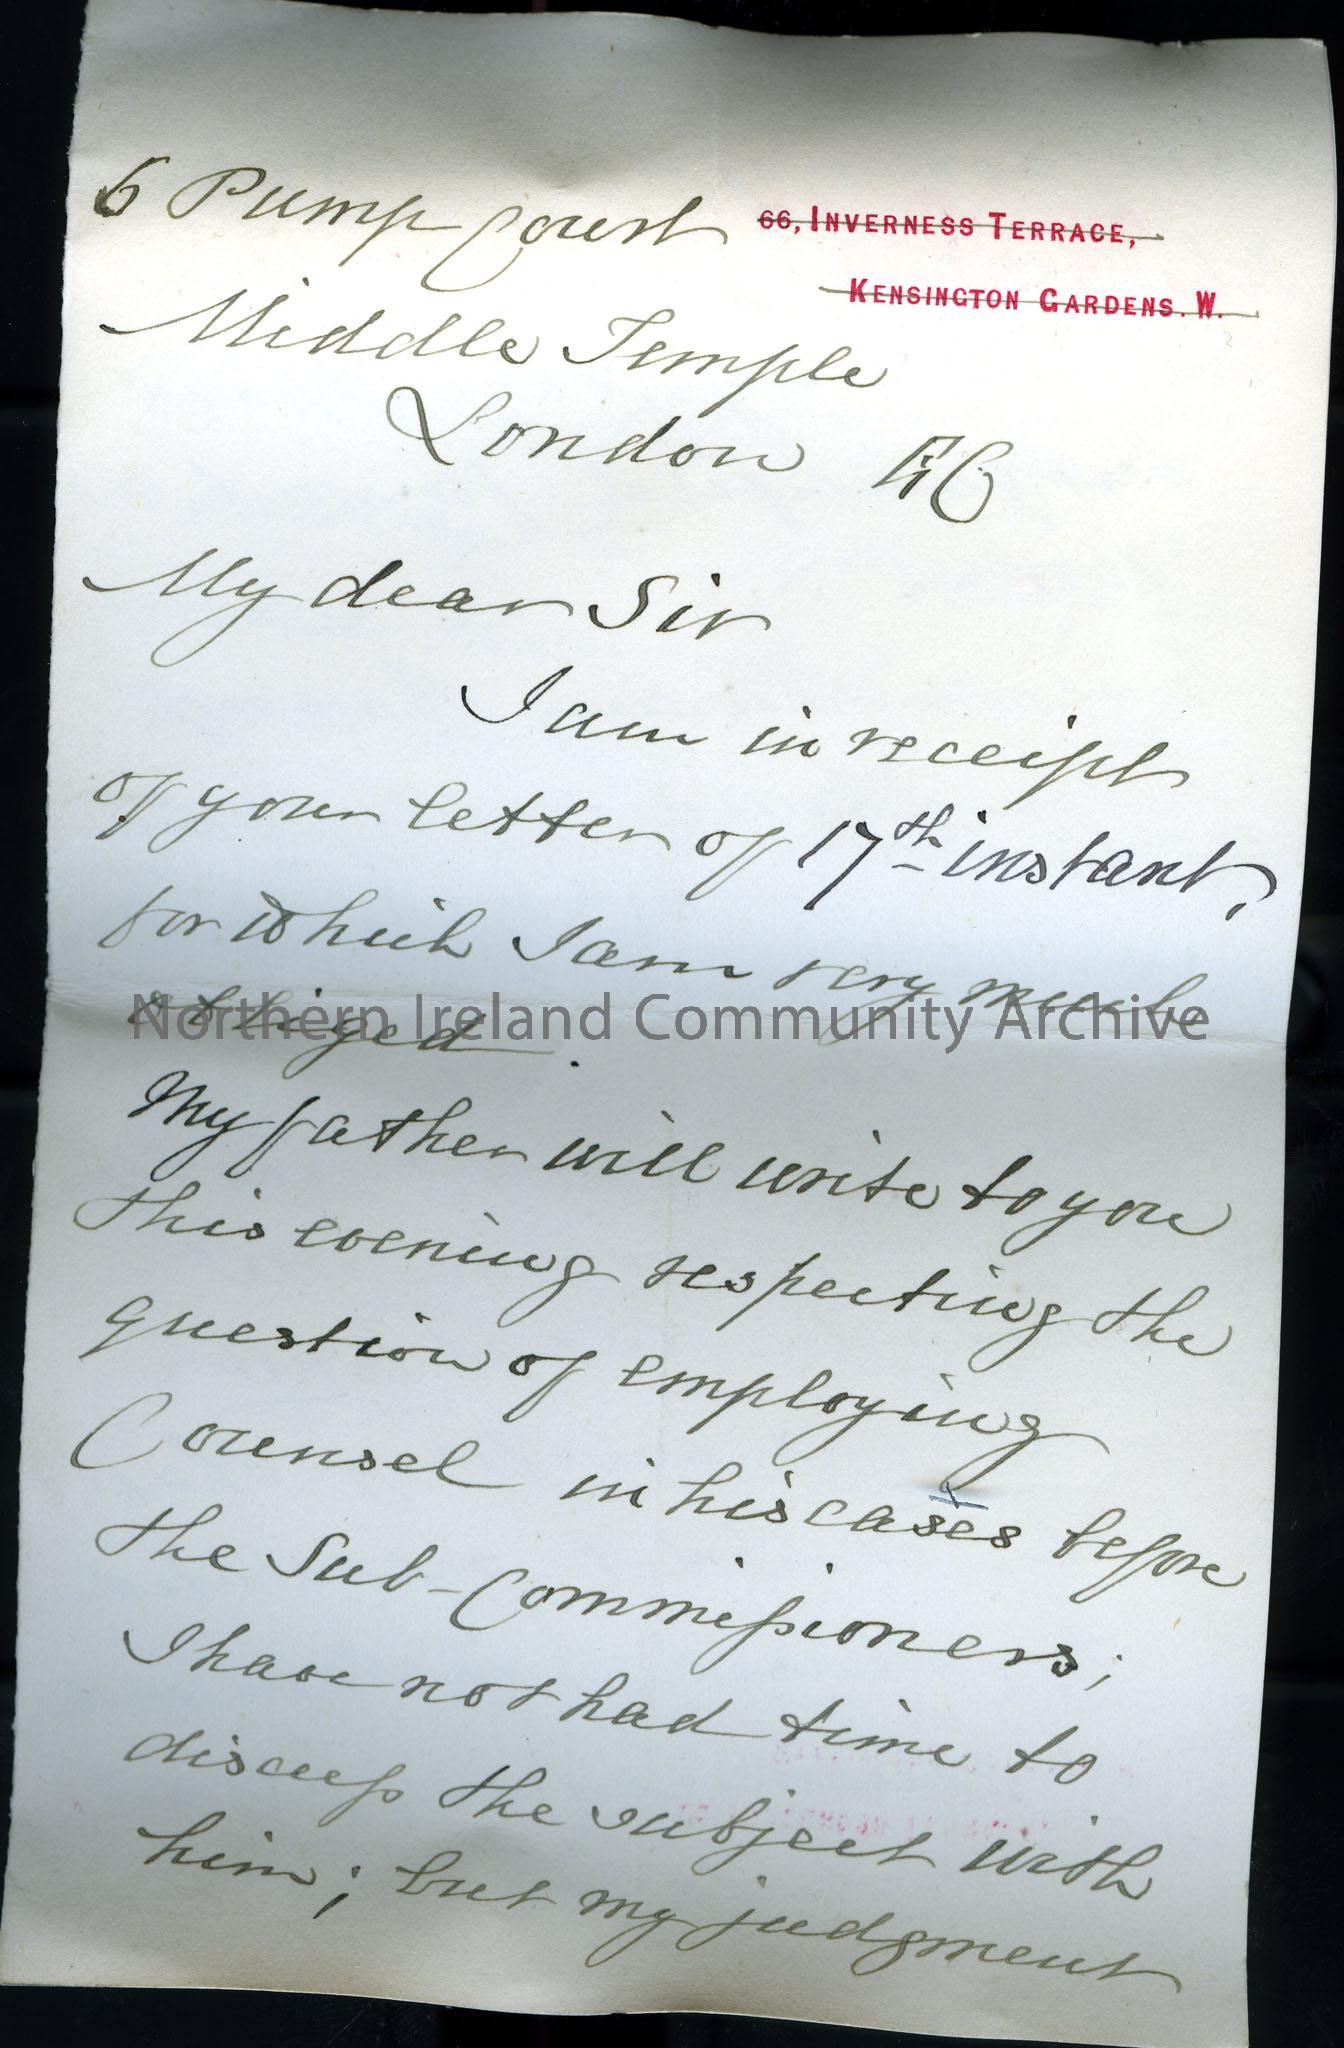 6 Pump Court
66, INVERNESS TERRACE,
KENSINGTON GARDENS. W.
Middle Temple
London EC
My dear Sir
I am in receipt
of your letter of 17th instant,
for which I am very much
obliged.
Northern Ireland Community Archive
My father will write to you
this evening respecting the
question of employing
Counsel in his cases before
the Sub-Commissioners;
I have not had time to
discuss the subject with
him; but my judgment